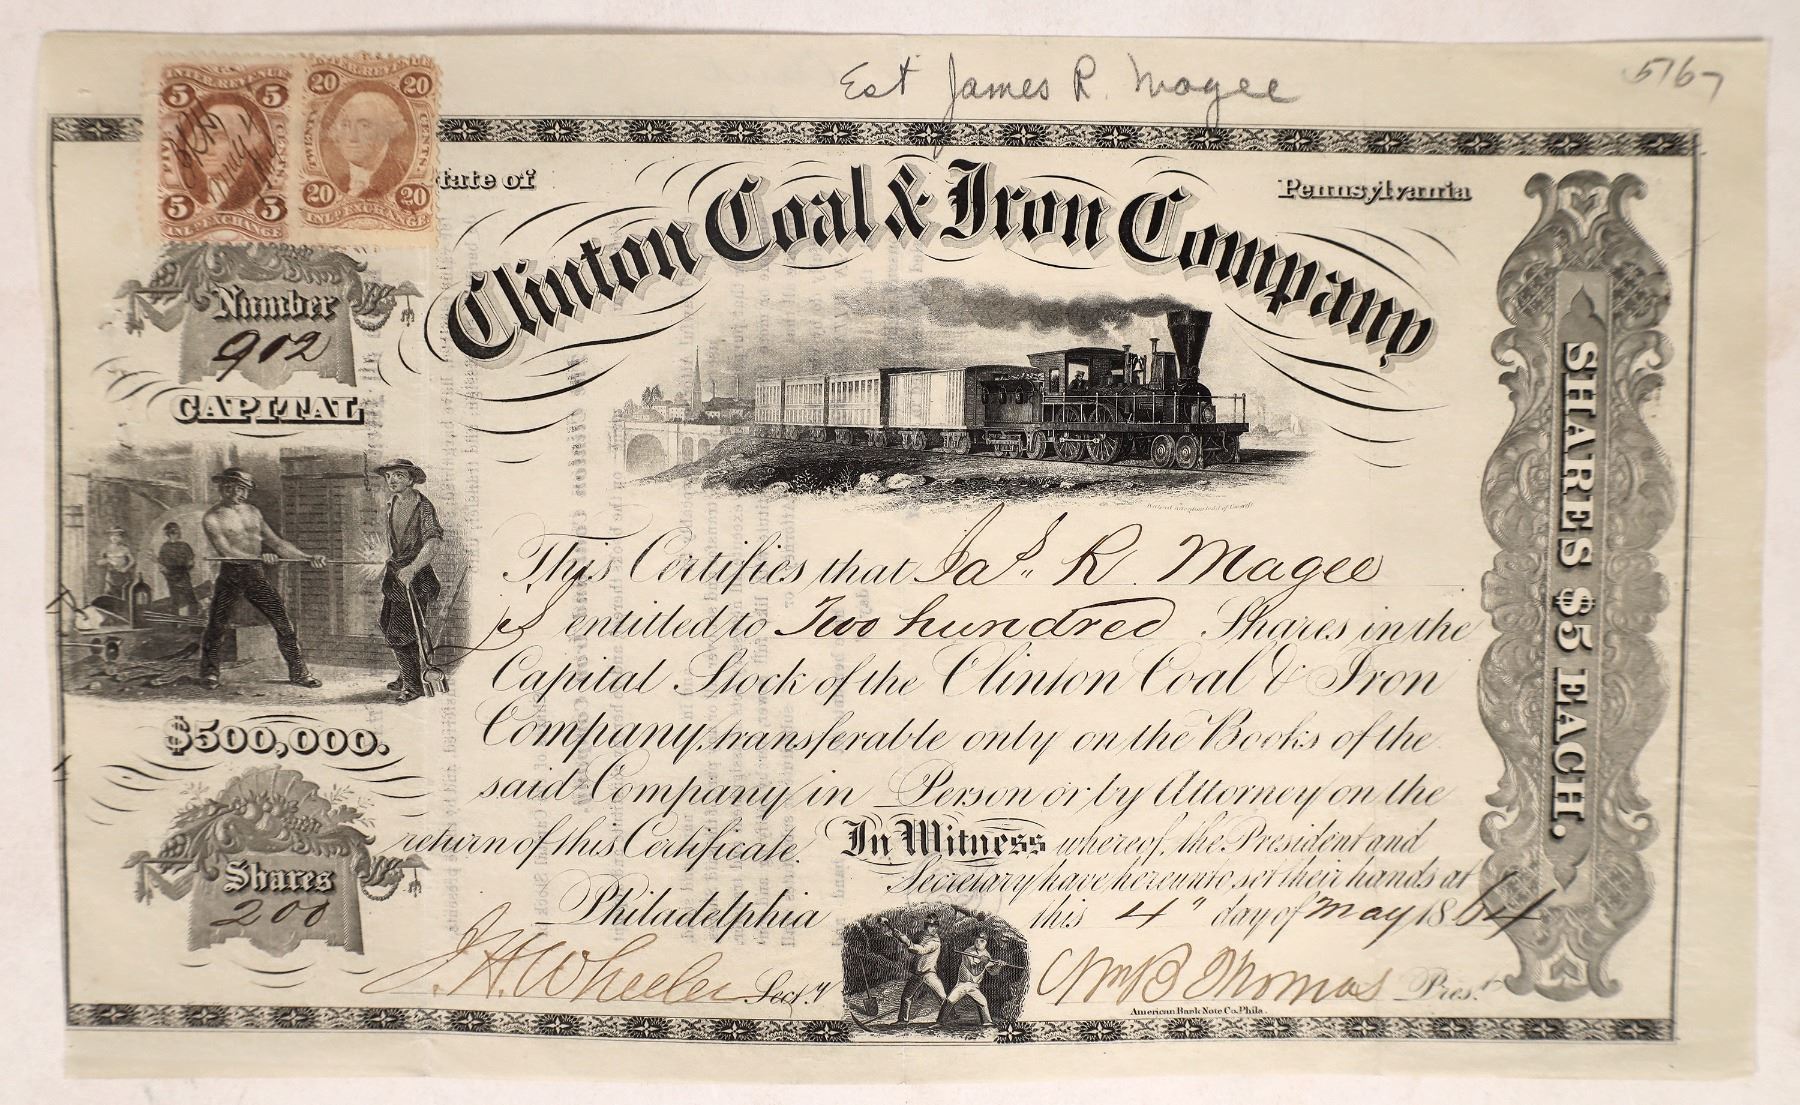 Est James R. Magee
5167
INTER. REVENUE
5 5
FIVE CENTS
5 5
INL EXCHANGE
INTER. REVENUE
20 20
TWENTY CENTS
20 20
INL EXCHANGE
tate of
Pennsylvania
Clinton Coal & Iron Company
Number
902
CAPITAL
$500,000.
Shares
200
SHARES $5 EACH.
This Certifies that Jas. R. Magee
is entitled to Two hundred Shares in the
Capital Stock of the Clinton Coal & Iron
Company, transferable only on the Books of the
said Company in Person or by Attorney on the
return of this Certificate. In Witness whereof, the President and
Secretary have hereunto set their hands at
Philadelphia this 4" day of May 1864
J. H. Wheeler Sect.y
Wm B Thomas Pres.t
American Bank Note Co. Phila.